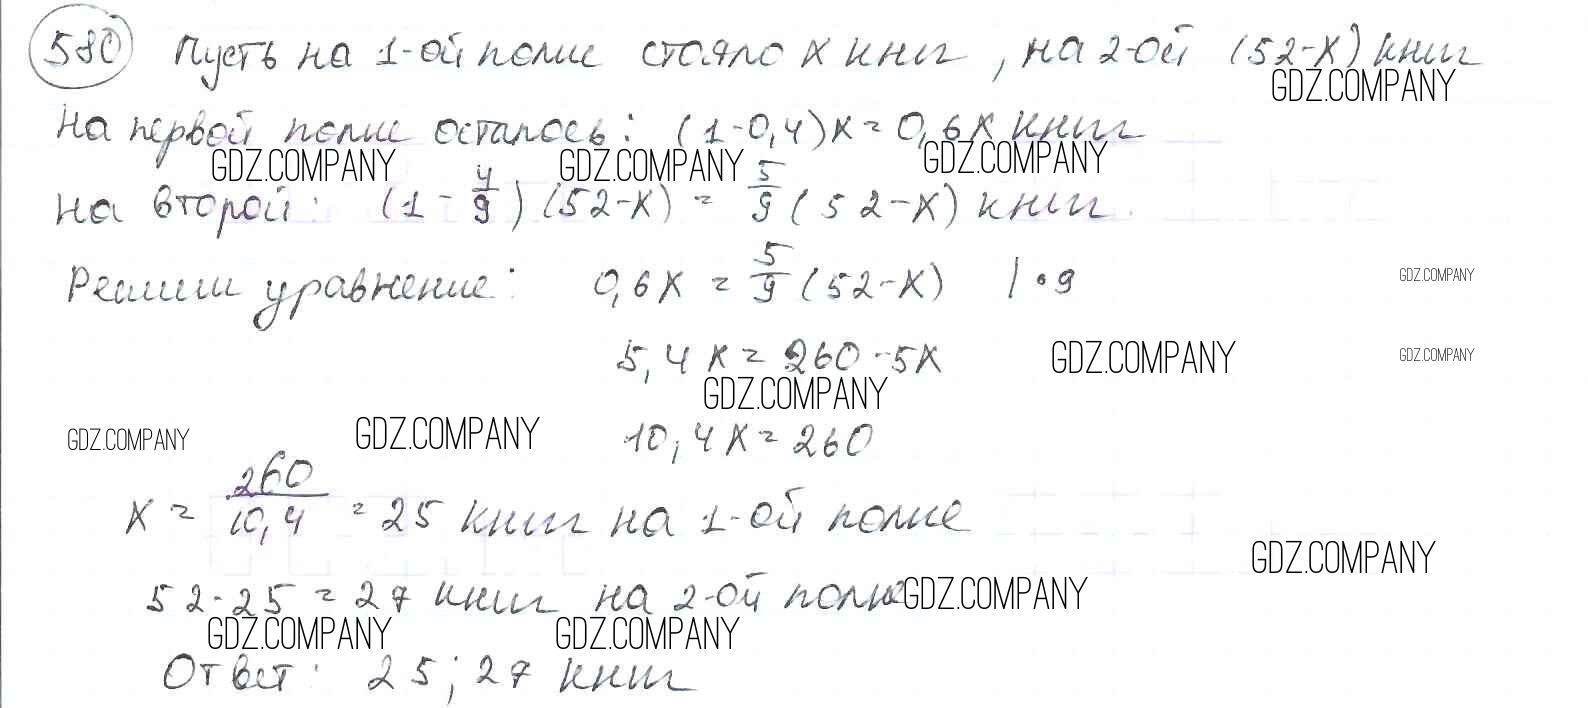 580 Пусть на 1-ой полке стояло x книг, на 2-ой (52-x) книг
GDZ.COMPANY
На первой полке осталось: (1-0,4)x = 0,6x книг
GDZ.COMPANY GDZ.COMPANY GDZ.COMPANY
На второй: (1 - 4/9) (52-x) = 5/9 (52-x) книг.
Решим уравнение: 0,6x = 5/9 (52-x) | • 9
GDZ.COMPANY
5,4x = 260-5x
GDZ.COMPANY GDZ.COMPANY
GDZ.COMPANY
10,4x = 260
GDZ.COMPANY GDZ.COMPANY
x = 260/10,4 = 25 книг на 1-ой полке
GDZ.COMPANY
52-25 = 27 книг на 2-ой полке
GDZ.COMPANY
GDZ.COMPANY GDZ.COMPANY
Ответ: 25; 27 книг